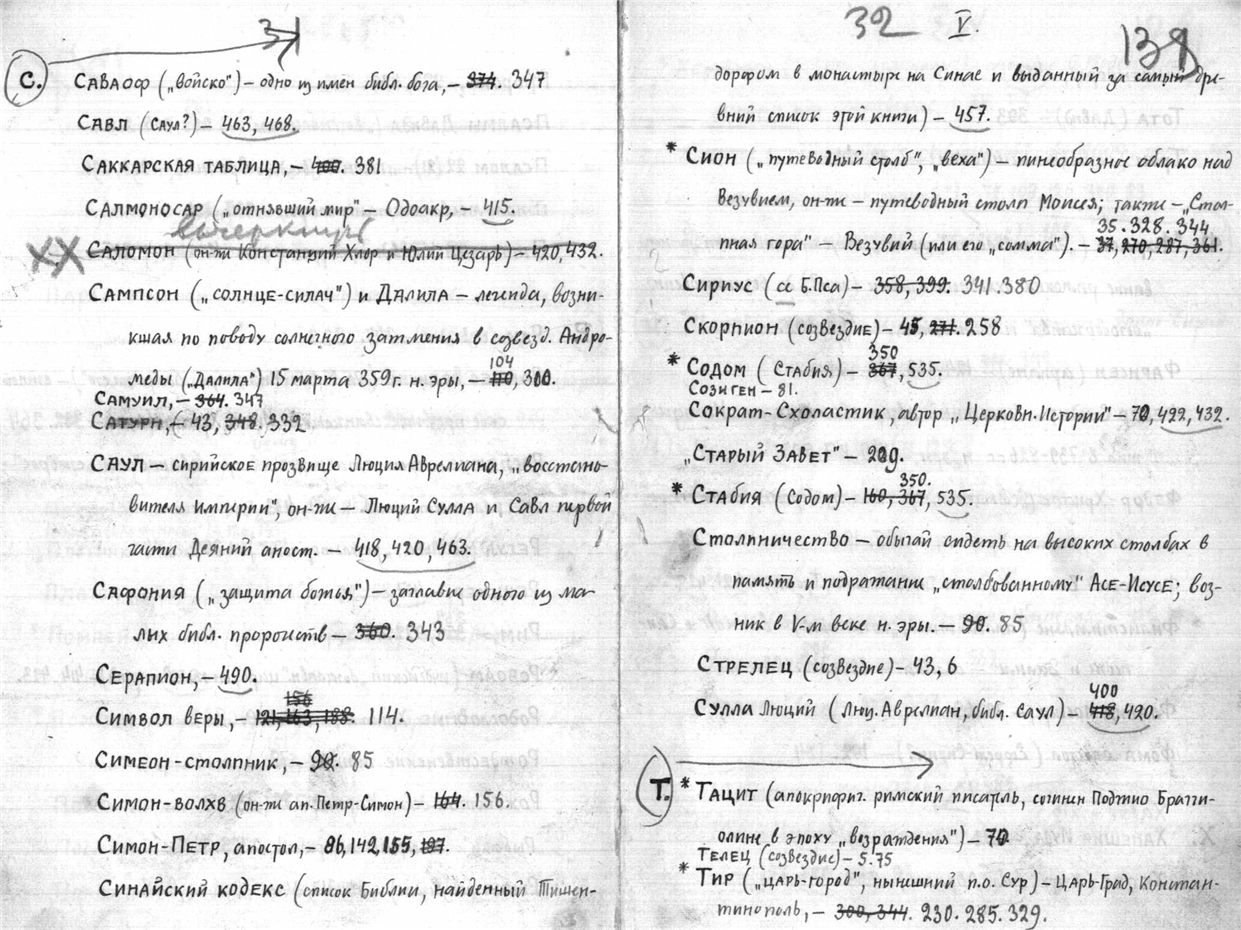 31
С. САВАОФ („войско") – одно из имен библ. бога, – 374. 347
САВЛ (САУЛ?) – 463, 468.
САККАРСКАЯ ТАБЛИЦА, – 400. 381
САЛМОНОСАР („отнявший мир" – Одоакр, – 415.
вычеркнуть
САЛОМОН (он-же Констанций Хлор и Юлий Цезарь) – 420, 432.
САМПСОН („СОЛНЦЕ-СИЛАЧ") и ДАЛИЛА – легенда, возни-
кшая по поводу солнечного затмения в созвезд. Андро-
104
меды („ДАЛИЛА") 15 марта 359 г. н. эры, – 110, 300.
САМУИЛ, – 364. 347
САТУРН, – 43, 348. 332
САУЛ – сирийское прозвище Люция Аврелиана, „восстано-
вителя империи", он-же – Люций Сулла и Савл первой
части Деяний апост. – 418, 420, 463.
САФОНИЯ („защита божья") – заглавие одного из ма-
лых библ. пророчеств – 360. 343
СЕРАПИОН, – 490.
156
СИМВОЛ ВЕРЫ, – 121, 163, 188. 114.
СИМЕОН-СТОЛПНИК, – 90. 85
СИМОН-ВОЛХВ (он-же ап. Петр-Симон) – 164. 156.
СИМОН-ПЕТР, апостол, – 86, 142, 155, 197.
СИНАЙСКИЙ КОДЕКС (список Библии, найденный Тишен-
32 V. 138
дорфом в монастыре на Синае и выданный за самый дре-
вний список этой книги) – 457.
* СИОН („путеводный столб", „веха") – пинеобразное облако над
Везувием, он-же – путеводный столп Моисея; также – „Стол-
35. 328. 344
пная гора" – Везувий (или его „сомма"). – 37, 270, 287, 361.
СИРИУС (α Б. Пса) – 358, 399. 341. 380
СКОРПИОН (созвездие) – 45, 271. 258
350
* СОДОМ (СТАБИЯ) – 367, 535.
СОЗИГЕН – 81.
СОКРАТ-СХОЛАСТИК, автор „Церковн. Истории" – 70, 422, 432.
„СТАРЫЙ ЗАВЕТ" – 209.
350.
* СТАБИЯ (Содом) – 160, 367, 535.
СТОЛПНИЧЕСТВО – обычай сидеть на высоких столбах в
память и подражание „столбованному" АСЕ-ИСУСЕ; воз-
ник в V-м веке н. эры. – 90. 85
СТРЕЛЕЦ (созвездие) – 43, 6
400
СУЛЛА ЛЮЦИЙ (Люц. Аврелиан, библ. САУЛ) – 418, 420.
Т. * ТАЦИТ (апокрифич. римский писатель, сочинен Поджио Браччи-
олине в эпоху „возрождения") – 70
ТЕЛЕЦ (созвездие) – 5. 75
* ТИР („ЦАРЬ-ГОРОД", нынешний п. о. СУР) – ЦАРЬ-ГРАД, Констан-
тинополь, – 300, 344. 230. 285. 329.